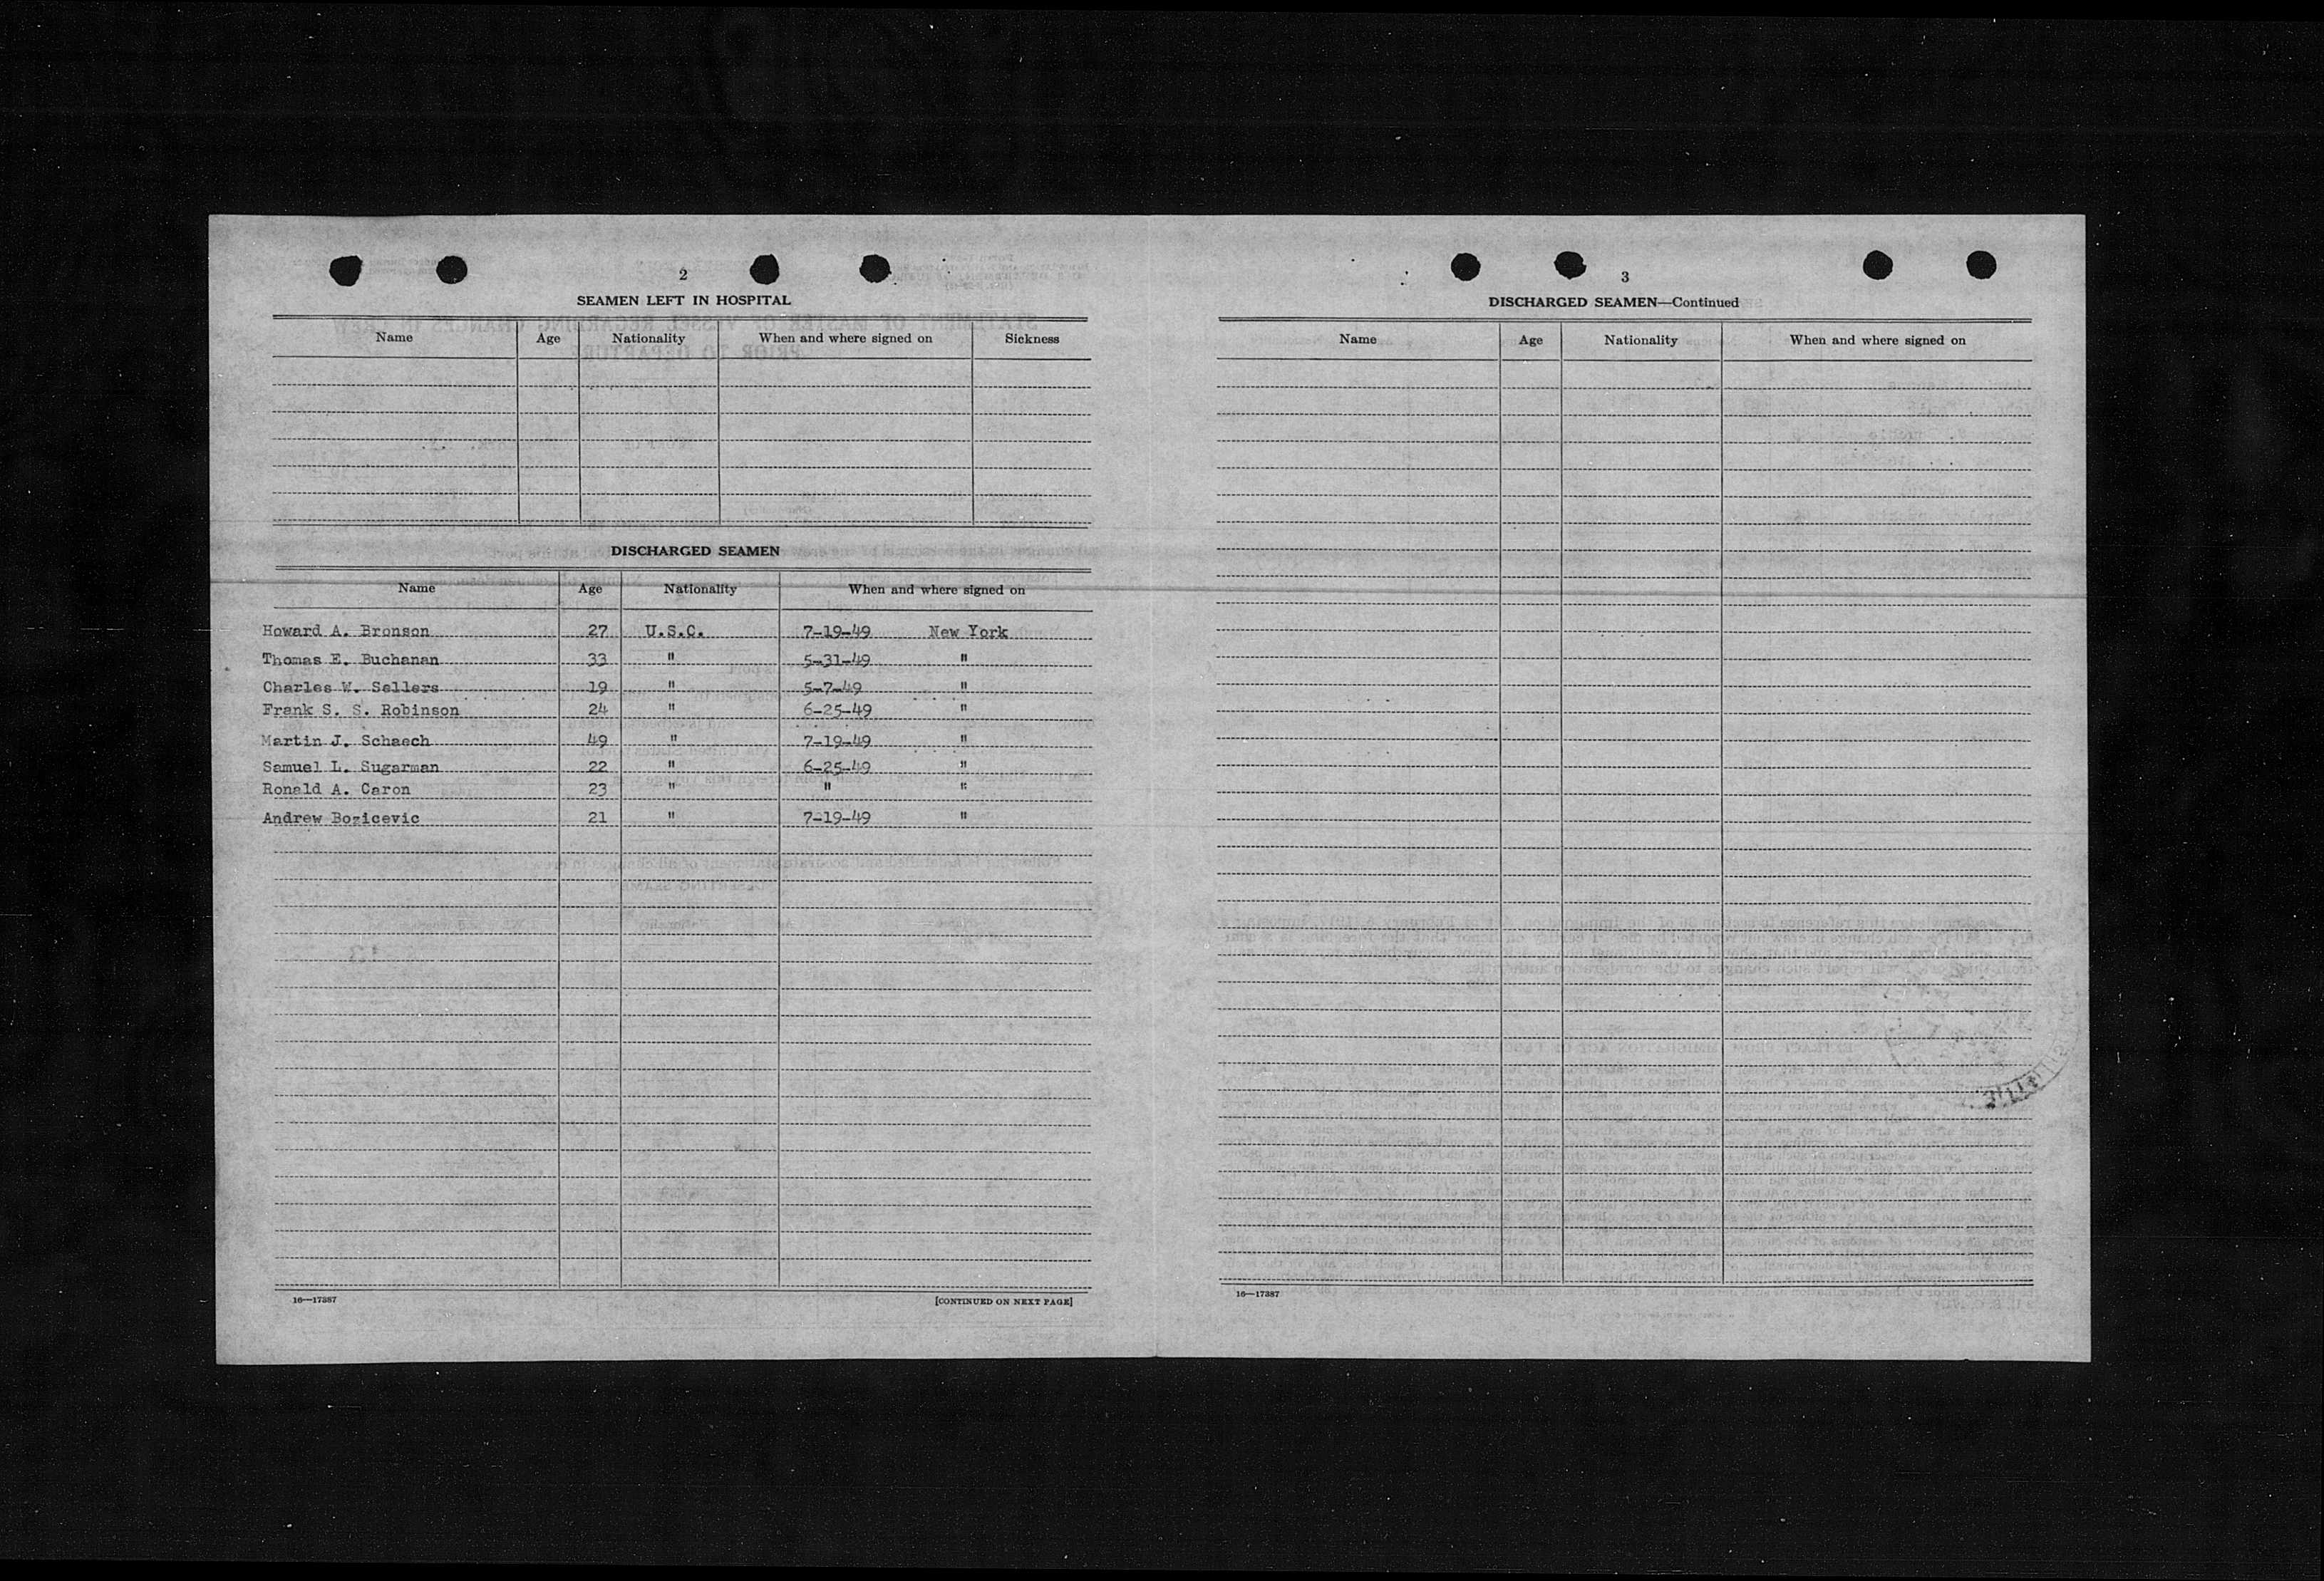 2
SEAMEN LEFT IN HOSPITAL
Name Age Nationality When and where signed on Sickness
DISCHARGED SEAMEN
Name Age Nationality When and where signed on
Howard A. Bronson 27 U.S.C. 7-19-49 New York
Thomas E. Buchanan 33 " 5-31-49 "
Charles W. Sellers 19 " 5-7-49 "
Frank S. S. Robinson 24 " 6-25-49 "
Martin J. Schaech 49 " 7-19-49 "
Samuel L. Sugarman 22 " 6-25-49 "
Ronald A. Caron 23 " " "
Andrew Bozicevic 21 " 7-19-49 "
16—17387 [CONTINUED ON NEXT PAGE]
3
DISCHARGED SEAMEN—Continued
Name Age Nationality When and where signed on
16—17387